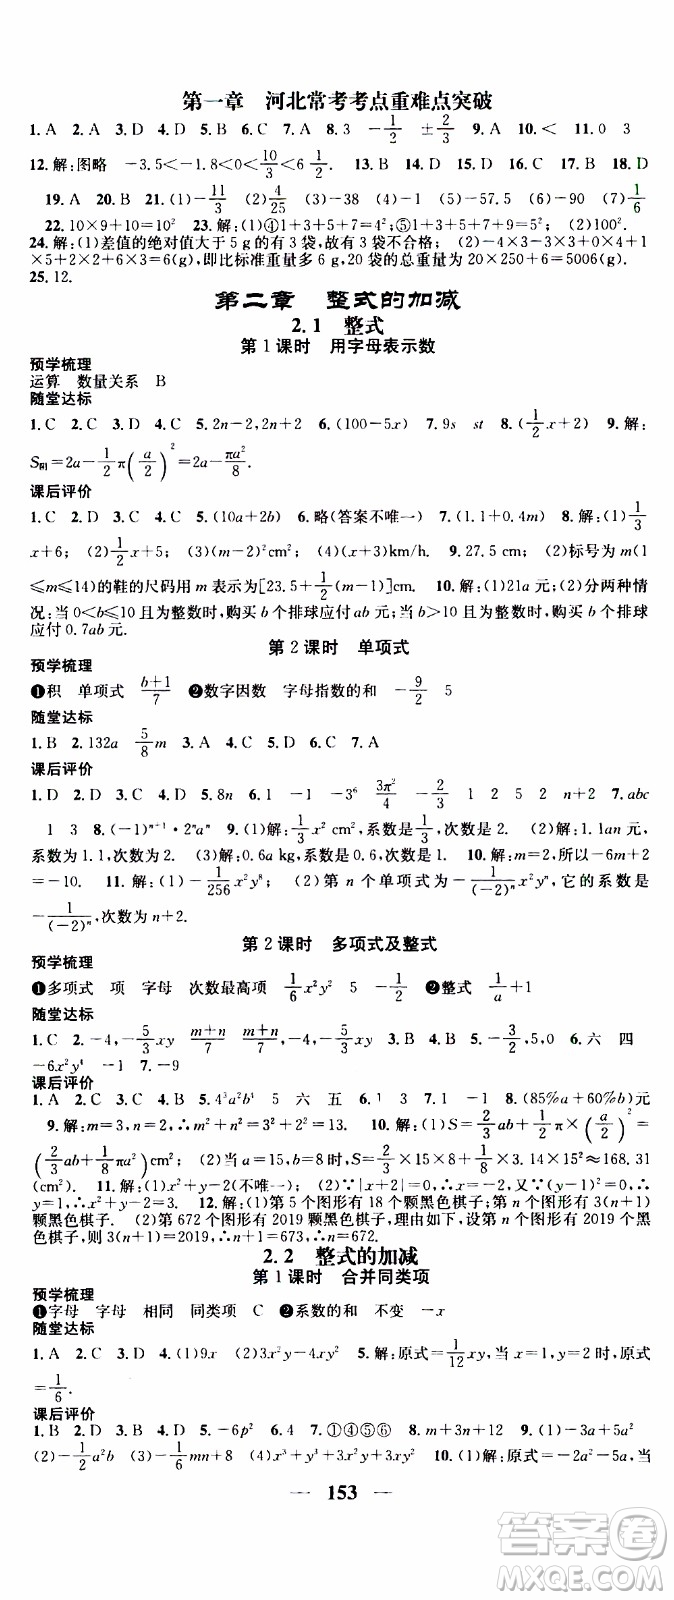 第一章 河北常考考点重难点突破
1. A 2. A 3. D 4. B 5. C 6. C 7. A 8. 3 -1/2 ±2/3 9. A 10. < 11. 0 3
12. 解:图略 -3.5<-1.8<0<10/3<6 1/2. 13. B 14. B 15. B 16. D 17. B 18. D
19. A 20. B 21. (1)-11/3 (2)4/25 (3)-38 (4)-38 (5)-90 (6)1/6
22. 10×9+10=10² 23. 解:(1)④1+3+5+7=4²;⑤1+3+5+7+9=5² (2)100².
24. 解:(1)差值的绝对值大于 5 g 的有 3 袋,故有 3 袋不合格; (2)-4×3-3×4-2×3+0×4+1
×5+2×2+6×3=6(g),即比标准重量多 6 g,20 袋的总重量为 20×250+6=5006(g).
25. 12.
第二章 整式的加减
2.1 整式
第 1 课时 用字母表示数
预学梳理
运算 数量关系 B
随堂达标
1. C 2. C 3. D 4. A 5. 2n-2,2n+2 6. (100-5x) 7. 9s st 8. (1/2x+2) 9. 解:
S阴=2a-1/2π(a/2)²=2a-πa²/8.
课后评价
1. C 2. D 3. B 4. C 5. (10a+2b) 6. 略(答案不唯一) 7. (1+0.4m) 8. 解:(1)1/3
x+6; (2)1/2x+5; (3)(m-2)²cm²; (4)(x+3)km/h. 9. 解:(1)25.5 (2)标号为 m(1
≤m≤14)的鞋的尺码用 m 表示为[23.5+1/2(m-1)]cm. 10. 解:(1)21a 元; (2)分两种情
况:当 0<b≤10 且为整数时,购买 b 个排球应付 ab 元;当 b>10 且为整数时,购买 b 个排球
应付 0.7ab 元.
第 2 课时 单项式
预学梳理
❶积 单项式 b+1/7 ❷数字因数 字母指数的和 -9/2 5
随堂达标
1. B 2. 132a 5/8m 3. A 4. C 5. D 6. C 7. A
课后评价
1. D 2. D 3. A 4. D 5. 8n 6. 1 -1 -3⁶ 3π²/4 -3/4 1 2 5 2 n+2 7. abc
1 3 8. (-1)ⁿ⁺¹·2ⁿaⁿ 9. (1)解:1/3x² cm²,系数是1/3,次数为 2. (2)解:1.1an 元,
系数为 1.1,次数为 2. (3)解:0.6a kg,系数是 0.6,次数 1. 10. 解:m=2,所以-m³-m
=-10. 11. 解:(1)-1/256x²y⁸; (2)第 n 个单项式为-1/(-2)ⁿx²yⁿ,它的系数是
-1/(-2)ⁿ,次数为 n+2.
第 2 课时 多项式及整式
预学梳理
❶多项式 项 字母 次数最高项 1/6x²y² 5 -1/2 ❷整式 1/a+1
随堂达标
1. C 2. -4,-5/3xy m+n/7 m+n/7,-4,-5/3xy 3. B 4. B 5. -3/2,5 6. 六 四
-6x²y⁴ -1 7. -9
课后评价
1. A 2. C 3. C 4. B 5. 4³a²b¹ 5 六 五 6. 1 3 7. 1 -1 8. (85%a+60%b)元
9. 解:m=3,n=2,m²+n²=13. 10. 解:(1)S=2/3ab+1/2π×(a/2)²=
(2/3ab+1/8πa²)cm²; (2)当 a=15,b=8时,S=2/3×15×8+1/8π×15²≈168.31
(cm²). 11. 解:(1)x²+y-2(不唯一); (2)∵|x+2|=0,∴x=-2,又∵(y-1)²=0,
∴y=1,∴x²+y-2=3. 12. 解:(1)第 5 个图形有 18 个黑色棋子,第 n 个图形有 3(n+1)
颗黑色棋子. (2)第 672 个图形有 2019颗黑色棋子,理由如下,设第 n 个图形有 2019 颗黑
色棋子,则 3(n+1)=2019,∴n+1=673,∴n=672.
2.2 整式的加减
第 1 课时 合并同类项
预学梳理
❶字母 字母 相同 同类项 C ❷系数的和 不变 -x
随堂达标
1. A 2. C 3. D 4. (1)9x (2)3x²y-4xy² 5. 解:原式=1/12xy,当x=2,y=1时,原式
=1/6.
课后评价
1. B 2. D 3. B 4. D 5. -6p² 6. 4 7. ①④⑤⑥ 8. m+3n+12 9. (1)5ab²-13a²b
(2)-1/2a²b (3)-1/6mn+8 (4)x³+y³+x²y-2xy² 10. (1)解:原式=-2x²-2x,当
153
答案卷